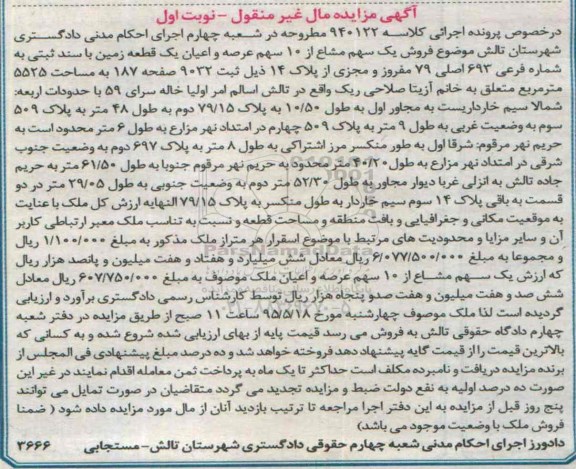 آگهی مزایده مال غیر منقول - نوبت اول
درخصوص پرونده اجرائی کلاسه ۹۴۰۱۲۲ مطروحه در شعبه چهارم اجرای احکام مدنی دادگستری
شهرستان تالش موضوع فروش یک سهم مشاع از ۱۰ سهم عرصه و اعیان یک قطعه زمین با سند ثبتی به
شماره فرعی ۶۹۳ اصلی ۷۹ مفروز و مجزی از پلاک ۱۴ ذیل ثبت ۹۰۳۲ صفحه ۱۸۷ به مساحت ۵۵۲۵
مترمربع متعلق به خانم آزیتا صلاحی ریک واقع در تالش اسالم امر اولیا خاله سرای ۵۹ با حدودات اربعه:
شمالا سیم خارداریست به مجاور اول به طول ۱۰/۵۰ به پلاک ۷۹/۱۵ دوم به طول ۴۸ متر به پلاک ۵۰۹
سوم به وضعیت غربی به طول ۹ متر به پلاک ۵۰۹ چهارم در امتداد نهر مزارع به طول ۶ متر محدود است به
حریم نهر مرقوم: شرقا اول به طور منکسر مرز اشتراکی به طول ۸ متر به پلاک ۶۹۷ دوم به وضعیت جنوب
شرقی در امتداد نهر مزارع به طول ۴۰/۲۰ متر محدود به حریم نهر مرقوم جنوبا به طول ۶۱/۵۰ متر به حریم
جاده تالش به انزلی غربا دیوار مجاور به طول ۵۲/۳۰ متر دوم به وضعیت جنوبی به طول ۲۹/۰۵ متر در دو
قسمت به باقی پلاک ۱۴ سوم سیم خاردار به طول منکسر به پلاک ۷۹/۱۵ النهایه ارزش کل ملک با عنایت
به موقعیت مکانی و جغرافیایی و بافت منطقه و مساحت قطعه و نسبت به تناسب ملک معبر ارتباطی کاربر
آن و سایر مزایا و محدودیت های مرتبط با موضوع اسقرار هر متراز ملک مذکور به مبلغ ۱/۱۰۰/۰۰۰ ریال
و مجموعا به مبلغ ۶/۰۷۷/۵۰۰/۰۰۰ ریال معادل شش میلیارد و هفتاد و هفت میلیون و پانصد هزار ریال
که ارزش یک سهم مشاع از ۱۰ سهم عرصه و اعیان ملک موصوف به مبلغ ۶۰۷/۷۵۰/۰۰۰ ریال معادل
شش صد و هفت میلیون و هفت صدو پنجاه هزار ریال توسط کارشناس رسمی دادگستری برآورد و ارزیابی
گردیده است لذا ملک موصوف چهارشنبه مورخ ۹۵/۵/۱۸ ساعت ۱۱ صبح از طریق مزایده در دفتر شعبه
چهارم دادگاه حقوقی تالش به فروش می رسد قیمت پایه از بهای ارزیابی شده شروع شده و به کسانی که
بالاترین قیمت را از قیمت گایه پیشنهاد دهد فروخته خواهد شد و ده درصد مبلغ پیشنهادی فی المجلس از
برنده مزایده دریافت و نامبرده مکلف است حداکثر تا یک ماه به پرداخت ثمن معامله اقدام نمایند در غیر این
صورت ده درصد اولیه به نفع دولت ضبط و مزایده تجدید می گردد متقاضیان در صورت تمایل می توانند
پنج روز قبل از مزایده به این دفتر اجرا مراجعه تا ترتیب بازدید آنان از مال مورد مزایده داده شود ( ضمنا
فروش ملک با وضعیت موجود می باشد)
دادورز اجرای احکام مدنی شعبه چهارم حقوقی دادگستری شهرستان تالش- مستجابی ۳۶۶۶